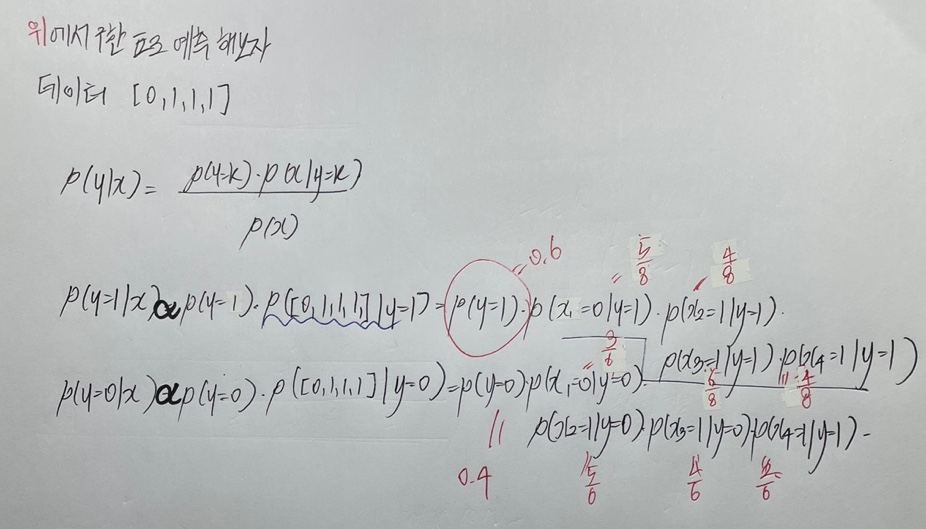 위에서 구한 표로 예측 해보자
데이터 [0,1,1,1]
p(y|x) = p(y=k)·p(x|y=k) / p(x)
p(y=1|x) ∝ p(y=1)·p([0,1,1,1]|y=1) = p(y=1)·p(x₁=0|y=1)·p(x₂=1|y=1)·
= 0.6
= 5/8
4/8
p(x₃=1|y=1)·p(x₄=1|y=1)
6/8
= 4/8
p(y=0|x) ∝ p(y=0)·p([0,1,1,1]|y=0) = p(y=0)·p(x₁=0|y=0)·
= 3/6
p(x₂=1|y=0)·p(x₃=1|y=0)·p(x₄=1|y=1)
= 0.4
= 5/6
4/6